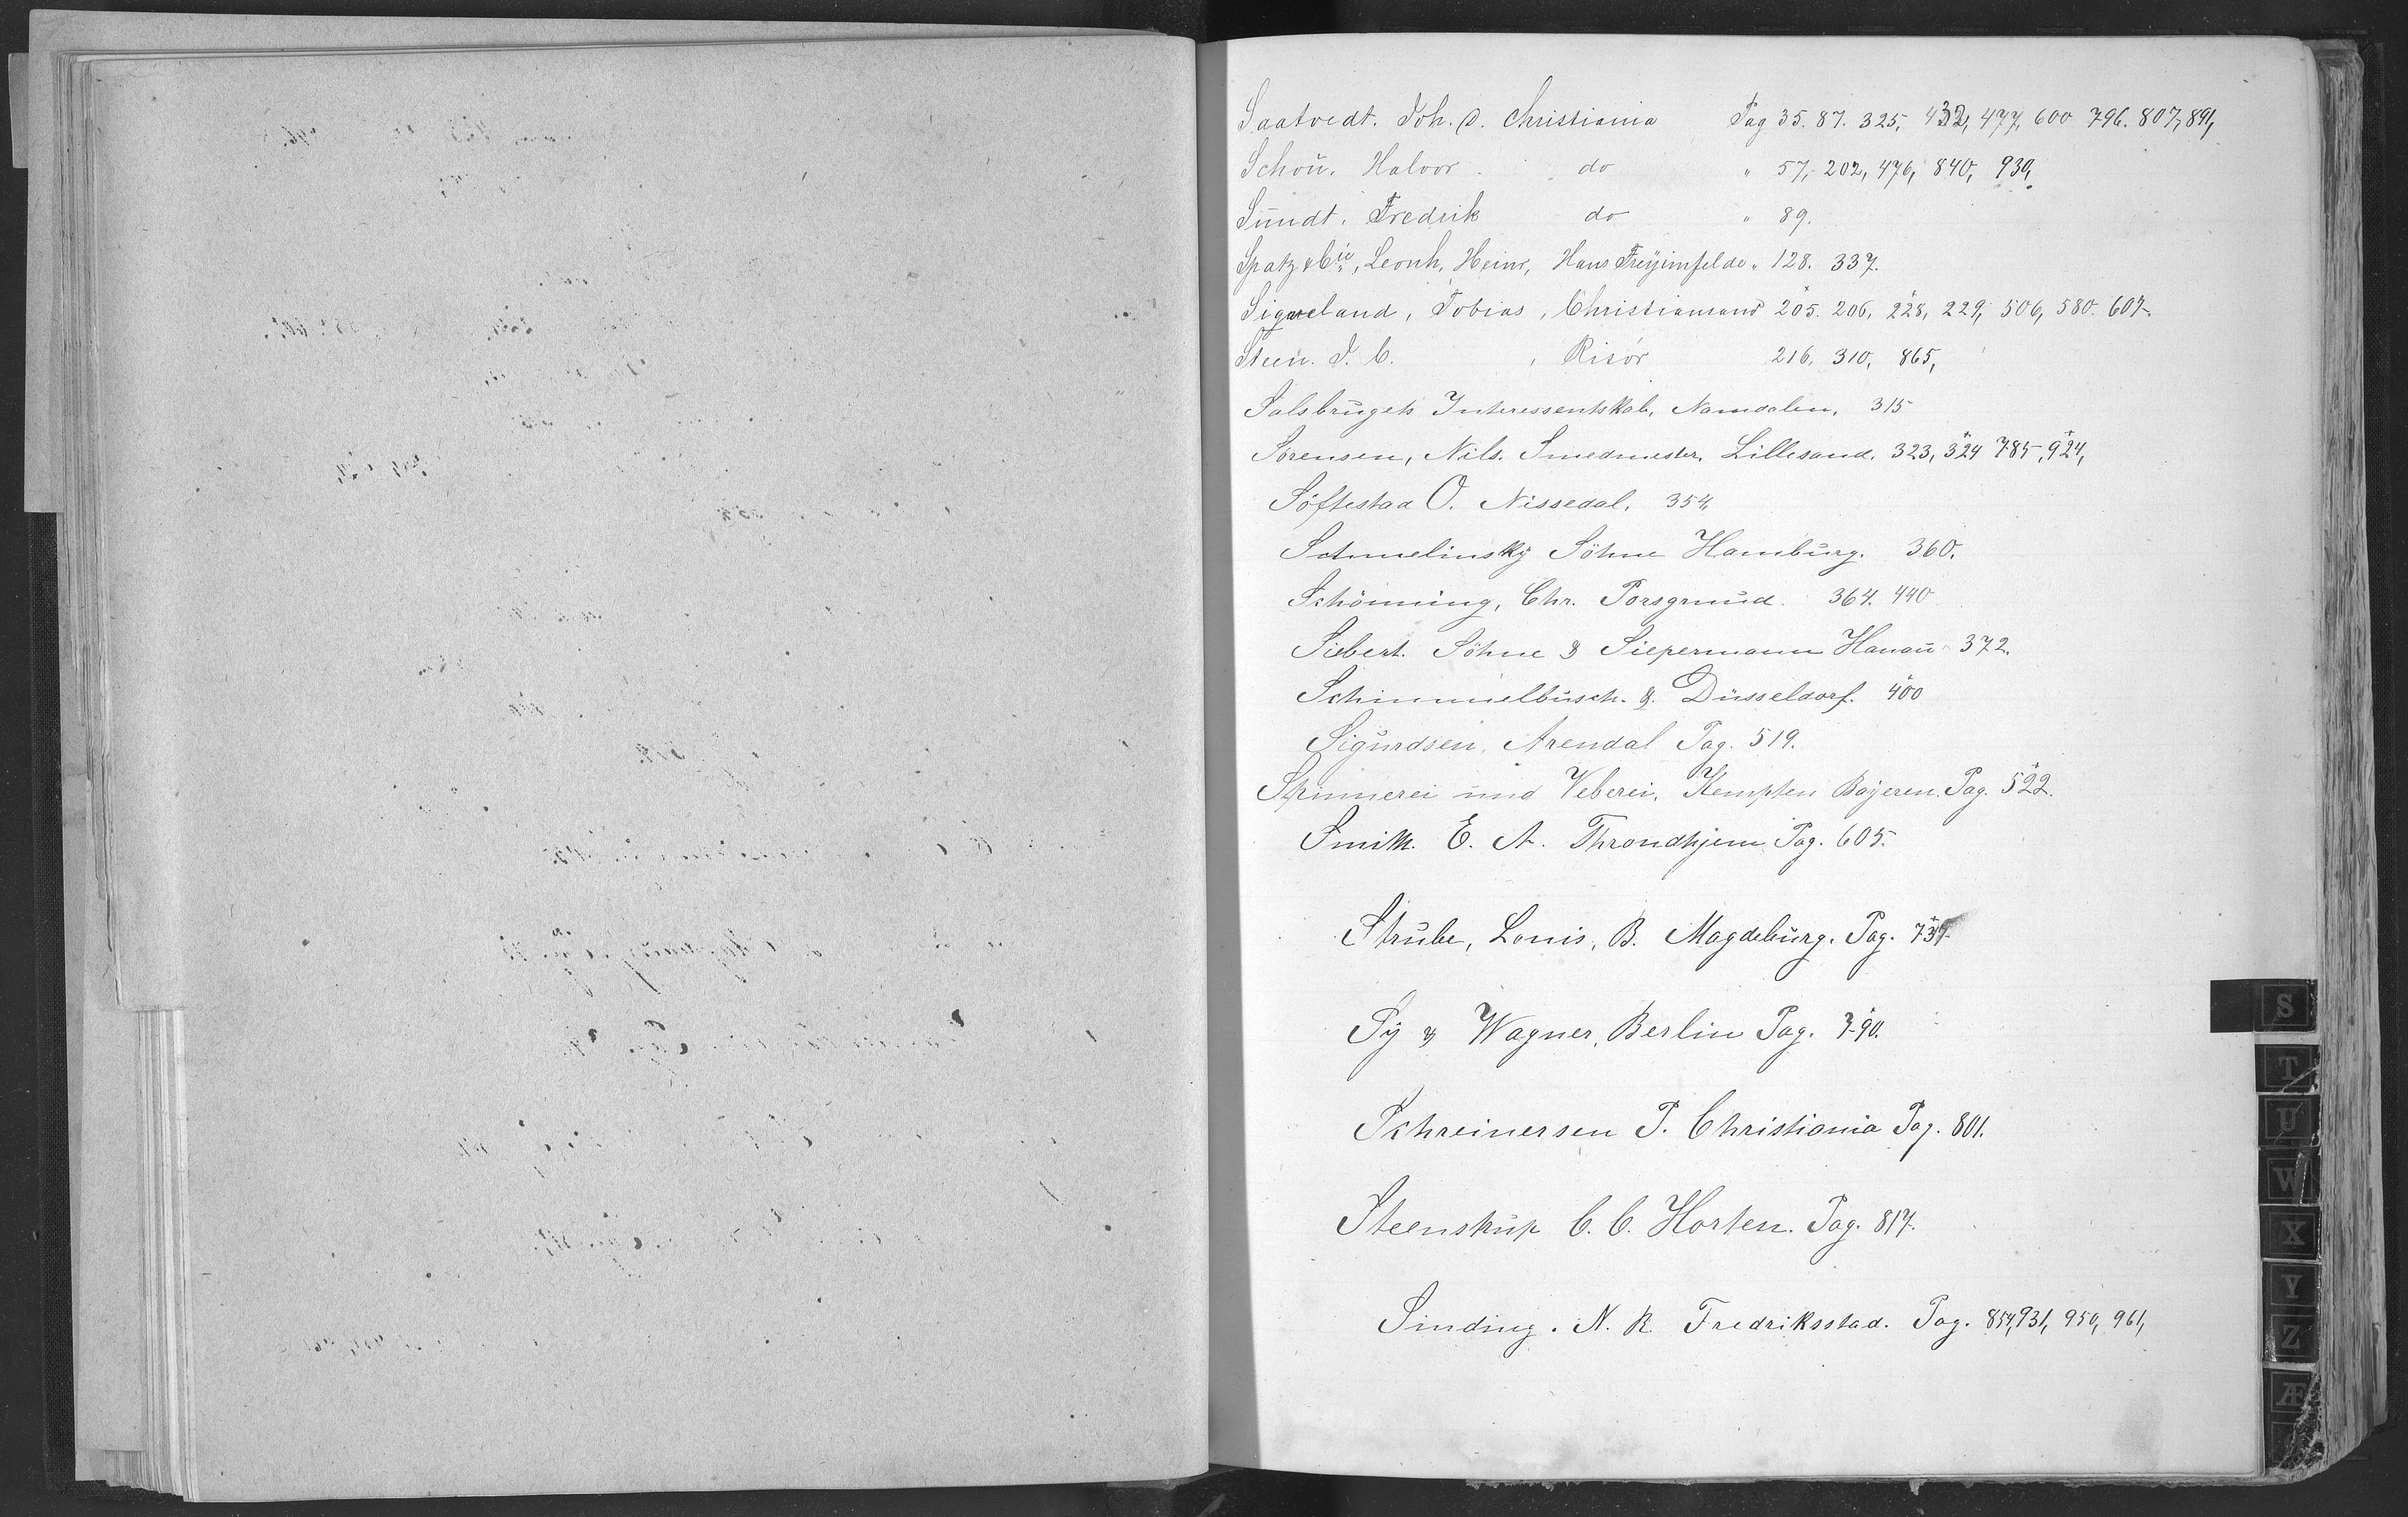 Saatvedt. Joh. O. Christiania Pag 35. 87. 325, 432, 477, 600 796. 807, 891,
Schou. Halvor. do " 57, 202, 476, 840, 930,
Sundt. Fredrik do " 89.
Spatz & Cie, Leonh. Heinr, Haus Freyimfelde " 128. 337.
Sigveland, Tobias, Christiansand 205. 206, 228, 229, 506, 580. 607.
Steen. J. C. , Risör 216. 310, 865,
Salsbrugets Interessentskab, Namdalen, 315
Sörensen, Nils. Smedmester. Lillesand. 323, 324 785, 924,
Söftestad O. Nissedal. 354,
Schmelinsky Söhne Hamburg. 360.
Schönning, Chr. Porsgrund. 364. 440
Siebert. Söhne & Siepermann Hanau 372.
Schimmelbusch. & Düsseldorf. 400
Sigurdsen, Arendal Pag. 519.
Spinnerei und Veberei, Kempten Bayeren. Pag. 522.
Smith. E. A. Throndhjem Pag. 605.
Strube, Louis, B. Magdeburg. Pag.
Sy & Wagner, Berlin Pag. 790.
Schreinersen P. Christiania Pag. 801.
Steenstrup C. C. Horten. Pag. 817.
Sinding. N. R. Fredriksstad. Pag. 854, 931, 950, 961,
S
T
U
W
X
Y
Z
Æ